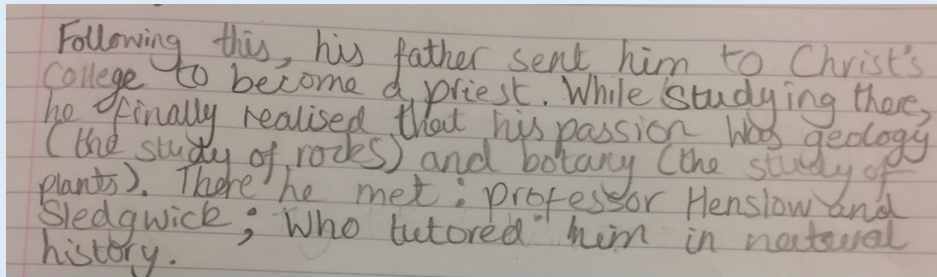 Following this, his father sent him to Christ's
College to become a priest. While studying there,
he finally realised that his passion was geology
(the study of rocks) and botany (the study of
plants). There he met: professor Henslow and
Sledgwick; Who tutored him in natural
history.